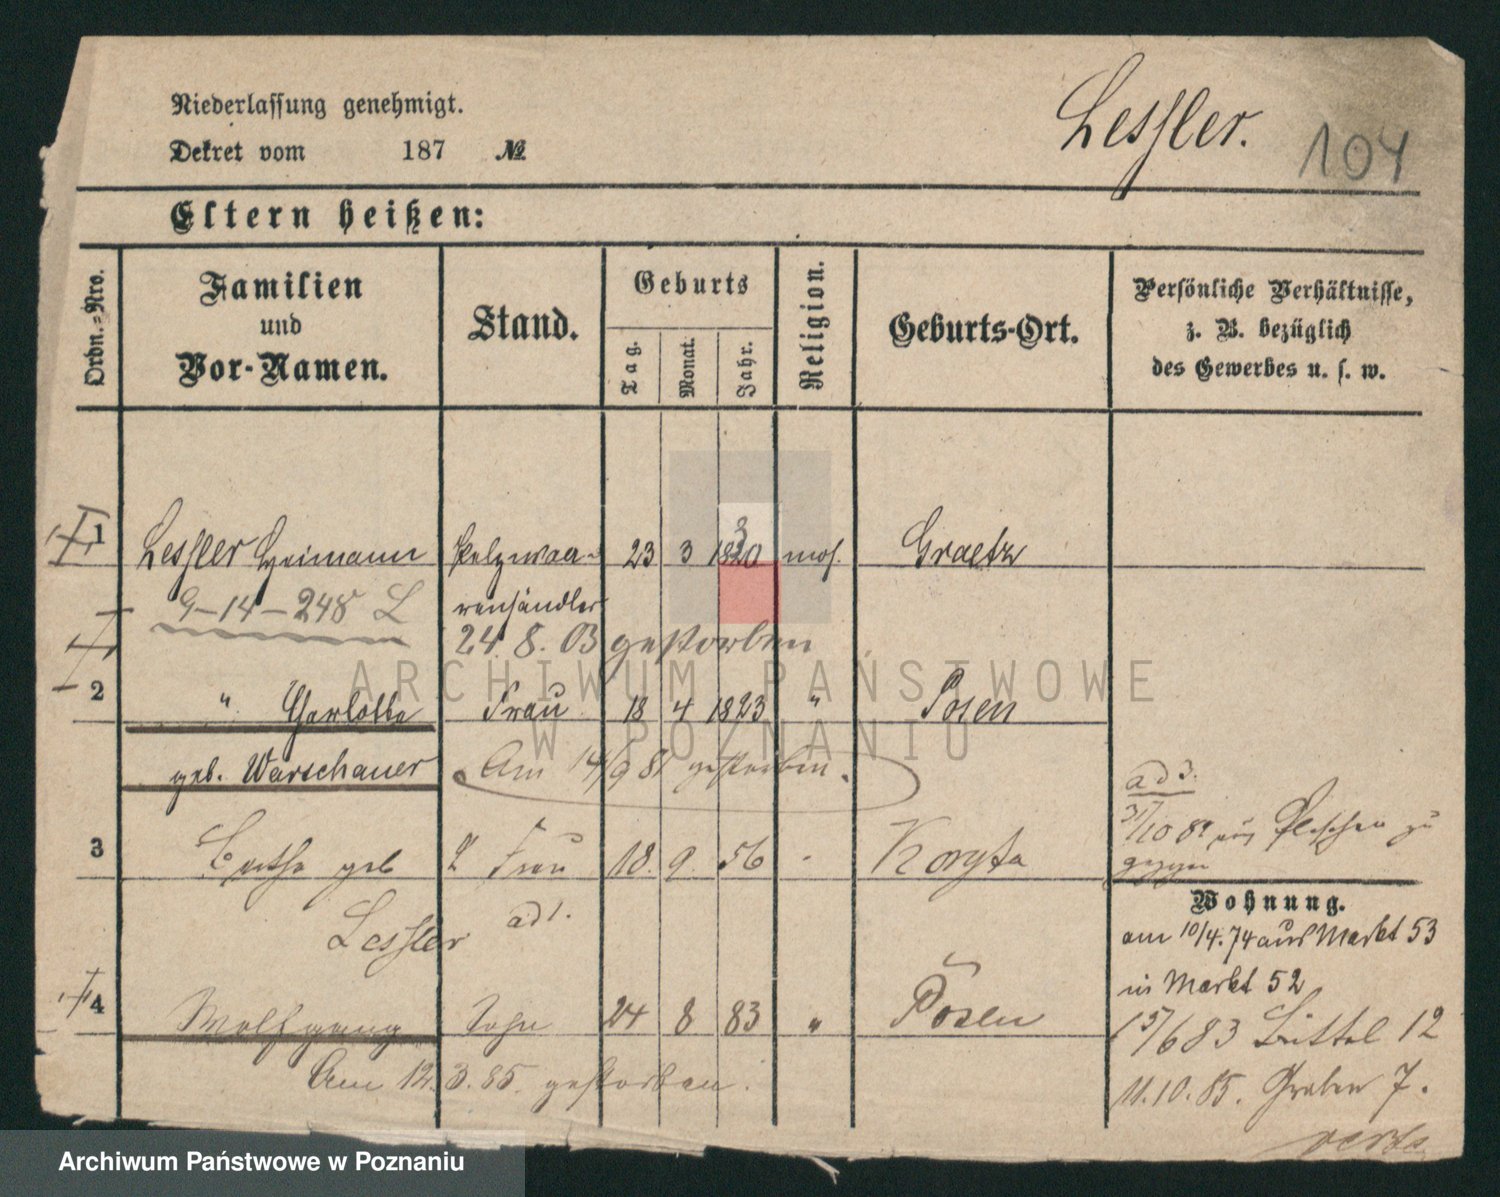 Niederlassung genehmigt.
Lessler.
104
Dekret vom 187 №
Eltern heißen:
Ordn.=Nro.
Familien und Vor-Namen.
Stand.
Geburts
Tag.
Monat.
Jahr.
Religion.
Geburts-Ort.
Persönliche Verhältnisse,
z. B. bezüglich
des Gewerbes u. s. w.
1 Lessler Heimann Pelzwaa- 23 3 1820 mos. Graetz
9-14-248 L renhändler
24. 8. 03 gestorben
ARCHIWUM PAŃSTWOWE
W POZNANIU
2 " Charlotte Frau 18 4 1823 " Posen
geb. Warschauer Am 14/9 81 gestorben.
ad 3.
31/10 82 aus Pleschen zu
gezogen
3 geb 2 Frau 18. 9. 56
Lessler ad 1.
Wohnung.
am 10/4. 74 aus Markt 53
in Markt 52
4 Wolfgang Sohn 24 8 83 " Posen
15/6 83 Büttel 12
Am 12. 3. 85. gestorben.
11. 10. 85. Graben 7.
verte
Archiwum Państwowe w Poznaniu